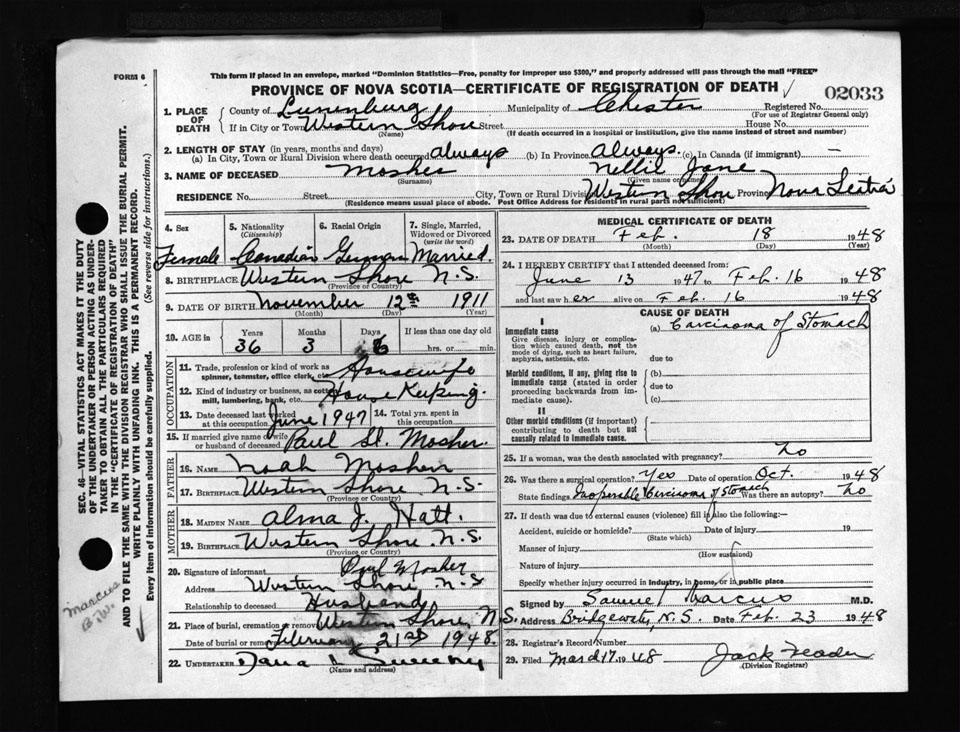 This form if placed in an envelope, marked "Dominion Statistics—Free, penalty for improper use $300," and properly addressed will pass through the mail "FREE"
FORM 6
PROVINCE OF NOVA SCOTIA—CERTIFICATE OF REGISTRATION OF DEATH ✓
02033
1. PLACE OF DEATH
County of Lunenburg Municipality of Chester Registered No.
(For use of Registrar General only)
If in City or Town Western Shore Street House No.
(Name) (If death occurred in a hospital or institution, give the name instead of street and number)
2. LENGTH OF STAY (in years, months and days)
(a) In City, Town or Rural Division where death occurred always (b) In Province Always. (c) In Canada (if immigrant) —
3. NAME OF DECEASED Mosher Nellie Jane
(Surname) (Given name or names)
RESIDENCE No. Street City, Town or Rural Division Western Shore Province Nova Scotia
(Residence means usual place of abode. Post Office Address for residents in rural parts not sufficient)
4. Sex 5. Nationality (Citizenship) 6. Racial Origin 7. Single, Married, Widowed or Divorced (write the word)
Female Canadian German Married.
8. BIRTHPLACE Western Shore N.S.
(Province or Country)
9. DATE OF BIRTH November 12th 1911
(Month) (Day) (Year)
10. AGE in Years Months Days If less than one day old
36 3 6 hrs. or min.
OCCUPATION
11. Trade, profession or kind of work as spinner, teamster, office clerk, etc. Housewife
12. Kind of industry or business, as cotton mill, lumbering, bank, etc. House Keeping.
13. Date deceased last worked at this occupation June 1947 14. Total yrs. spent in this occupation
15. If married give name of wife or husband of deceased Paul St. Mosher.
FATHER
16. NAME Noah Mosher
17. BIRTHPLACE Western Shore N.S.
(Province or Country)
MOTHER
18. MAIDEN NAME Alma J. Hatt.
19. BIRTHPLACE Western Shore N.S.
(Province or Country)
20. Signature of informant Paul Mosher
Address Western Shore N.S
Relationship to deceased Husband
21. Place of burial, cremation or removal Western Shore, N.S.
Date of burial or removal February 21st 1948.
22. UNDERTAKER Dana Sweeny
(Name and address)
MEDICAL CERTIFICATE OF DEATH
23. DATE OF DEATH Feb. 18 1948
(Month) (Day) (Year)
24. I HEREBY CERTIFY that I attended deceased from:
June 13 1947 to Feb. 16 1948
and last saw her alive on Feb. 16 1948
CAUSE OF DEATH
I
Immediate cause
Give disease, injury or complication which caused death, not the mode of dying, such as heart failure, asphyxia, asthenia, etc.
(a) Carcinoma of Stomach
due to
Morbid conditions, if any, giving rise to immediate cause (stated in order proceeding backwards from immediate cause)
(b)
due to
(c)
II
Other morbid conditions (if important) contributing to death but not causally related to immediate cause.
25. If a woman, was the death associated with pregnancy? No
26. Was there a surgical operation? Yes Date of operation Oct. 1948
State findings Inoperable Carcinoma of Stomach Was there an autopsy? No
27. If death was due to external causes (violence) fill in also the following:—
Accident, suicide or homicide? Date of injury 19
(State which)
Manner of injury
(How sustained)
Nature of injury
Specify whether injury occurred in industry, in home, or in public place
Signed by Samuel Marcus M.D.
Address Bridgewater, N.S. Date Feb. 23 1948
28. Registrar's Record Number
29. Filed March 17, 1948 Jack Meader
(Division Registrar)
SEC. 46—VITAL STATISTICS ACT MAKES IT THE DUTY OF THE UNDERTAKER OR PERSON ACTING AS UNDERTAKER TO OBTAIN ALL THE PARTICULARS REQUIRED IN THE "CERTIFICATE OF REGISTRATION OF DEATH" AND TO FILE THE SAME WITH THE DIVISION REGISTRAR WHO SHALL ISSUE THE BURIAL PERMIT.
WRITE PLAINLY WITH UNFADING INK. THIS IS A PERMANENT RECORD.
Every item of information should be carefully supplied. (See reverse side for instructions.)
Marcus
B.W.
✓